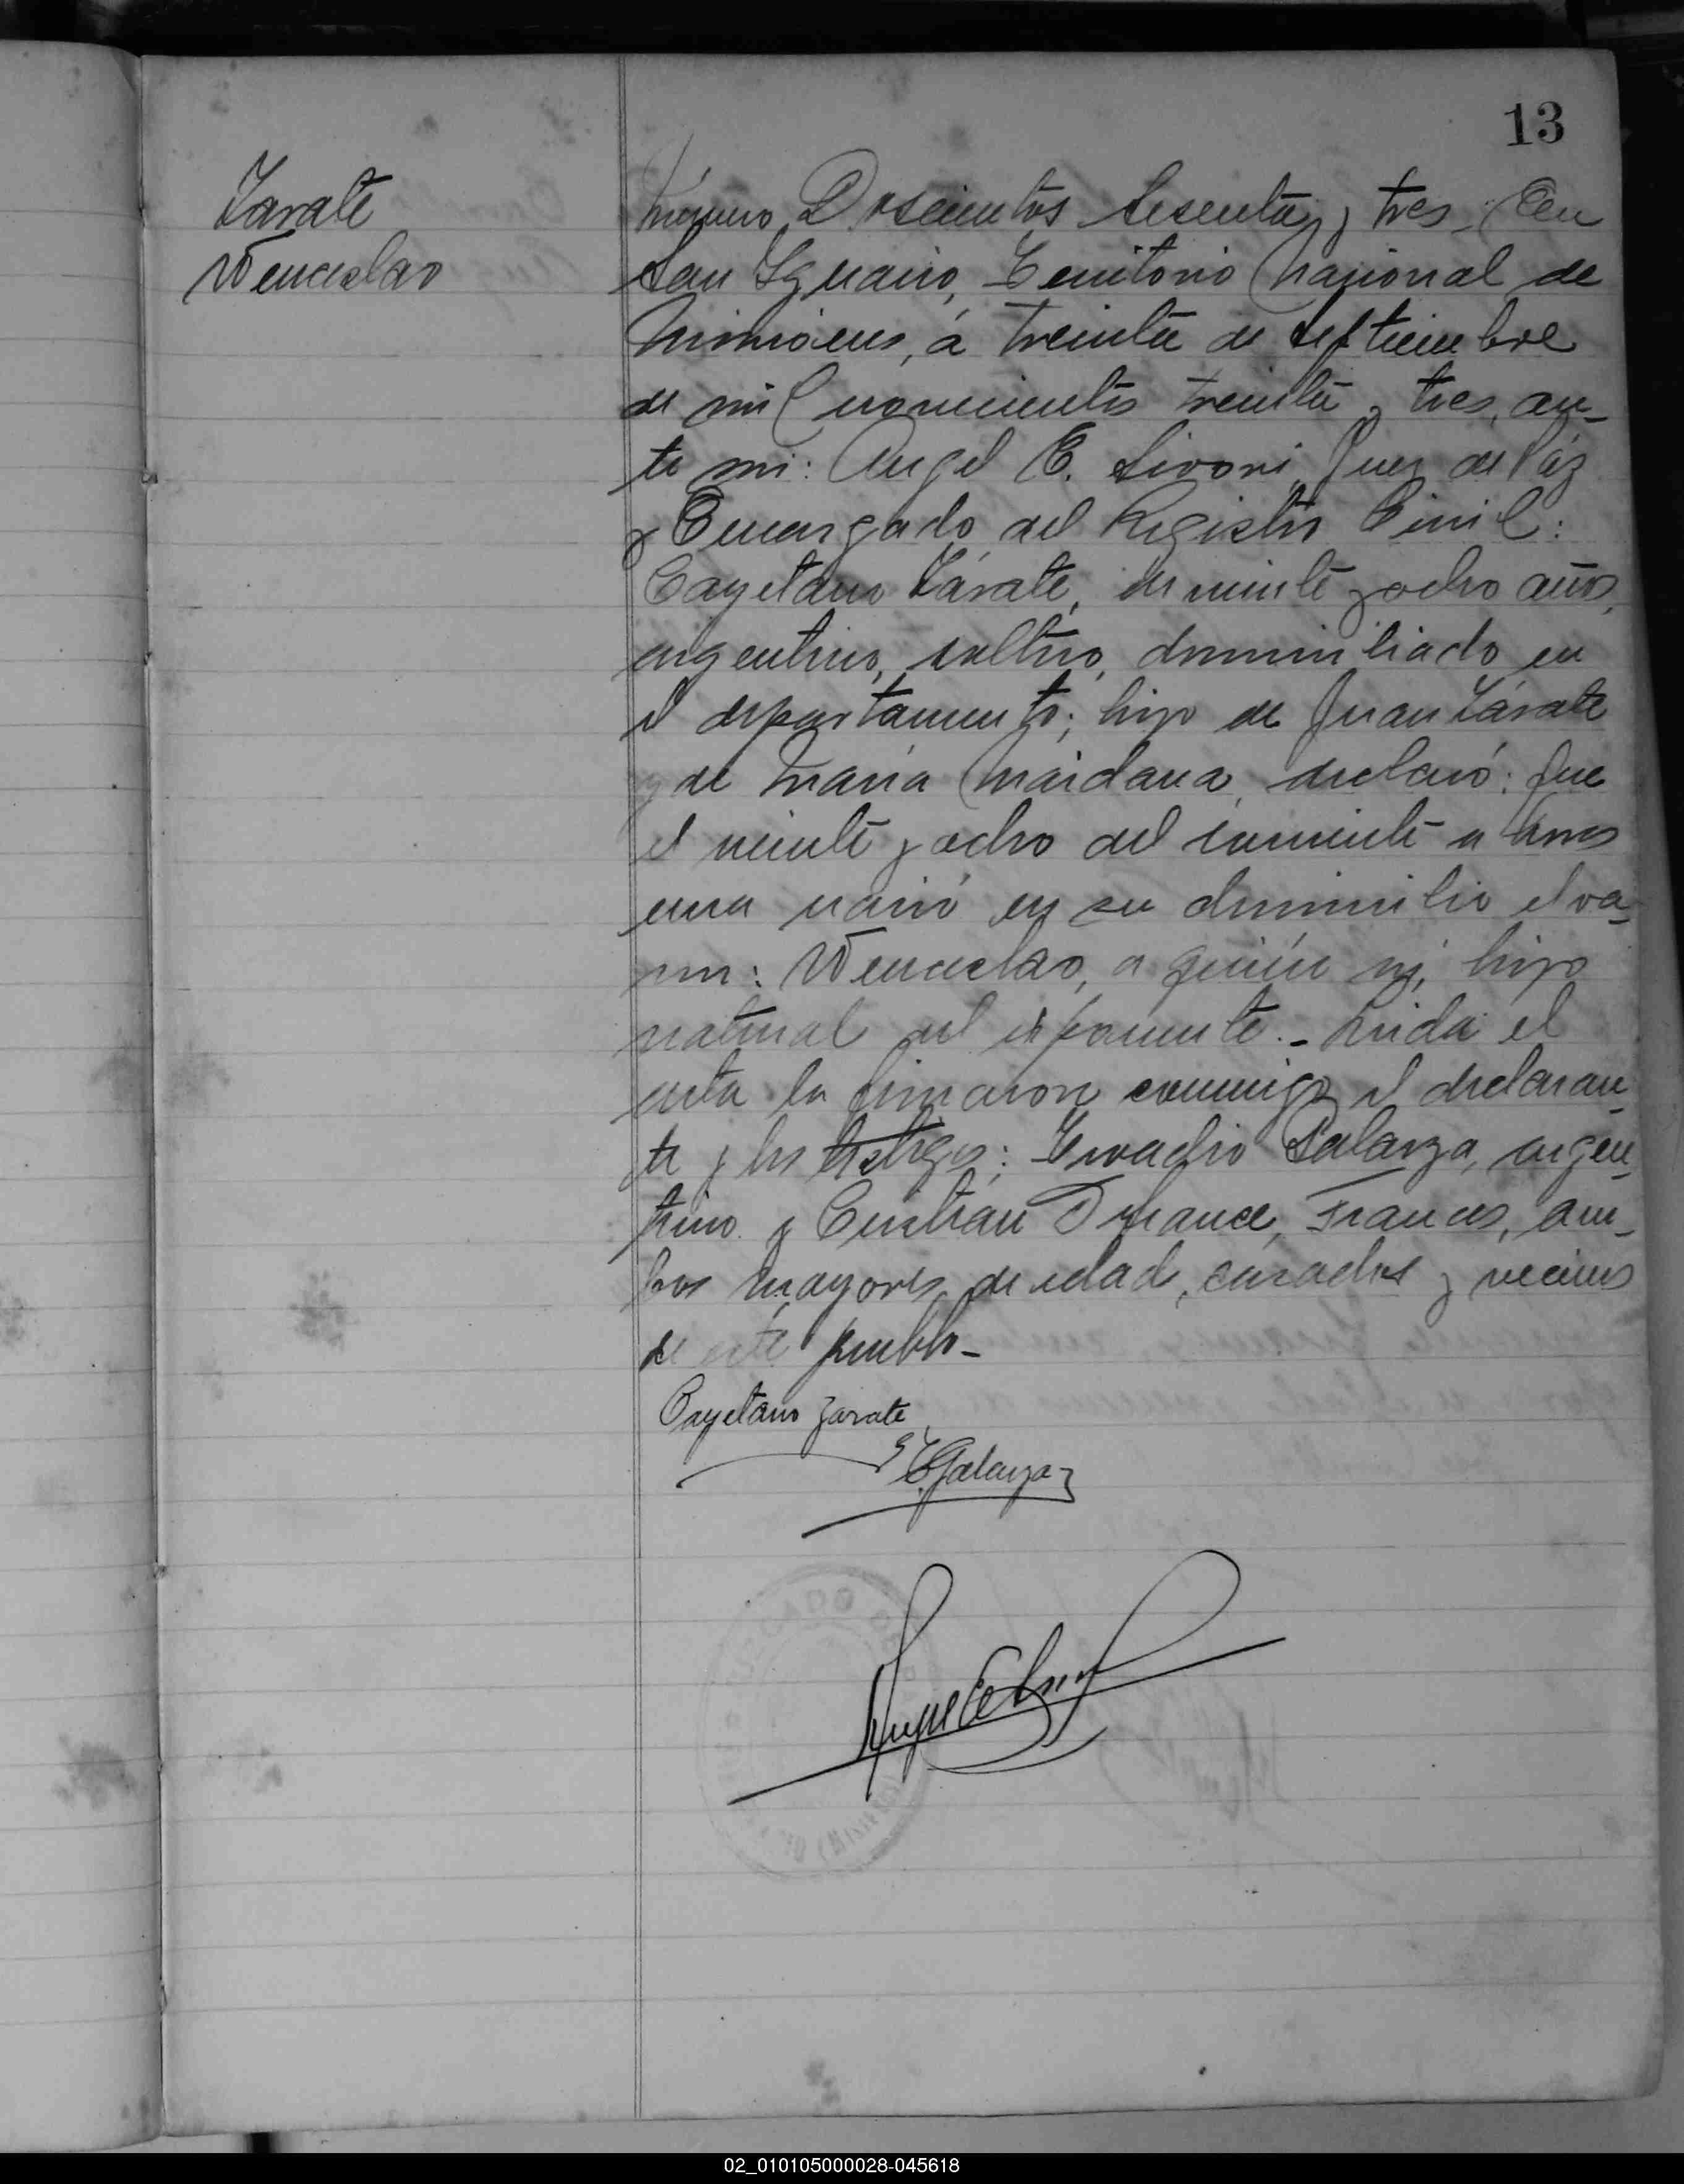 13
Zarate
Wenceslao
Número Doscientos sesenta y tres. En
San Ignacio, Territorio Nacional de
Misiones, á treinta de septiembre
de mil novecientos treinta y tres, an-
te mi: Angel E. Livori, Juez de Páz
y Encargado del Registro Civil:
Cayetano Zárate, de veinte y ocho años,
argentino, soltero, domiciliado en
el departamento; hijo de Juan Zárate
y de Maria Maidana, declaró: Que
el veinte y ocho del corriente a horas
una nació en su domicilio el va-
ron: Wenceslao, a quién vi, hijo
natural del exponente.- Leida el
acta la firmaron conmigo el declaran-
te y los testigos: Galarza, argen-
tino y Durance, Frances, am-
bos mayores de edad, casados y vecinos
de este pueblo-
Cayetano Zarate
E. Galarza
JUZGADO DE
(MISIONES)
02_010105000028-045618